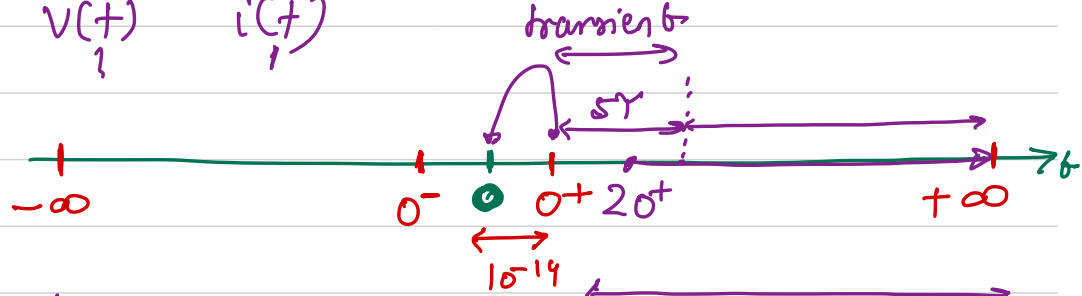 v(t) i(t) transient
5τ
t
-∞ 0- 0 0+ 20+ +∞
10-14